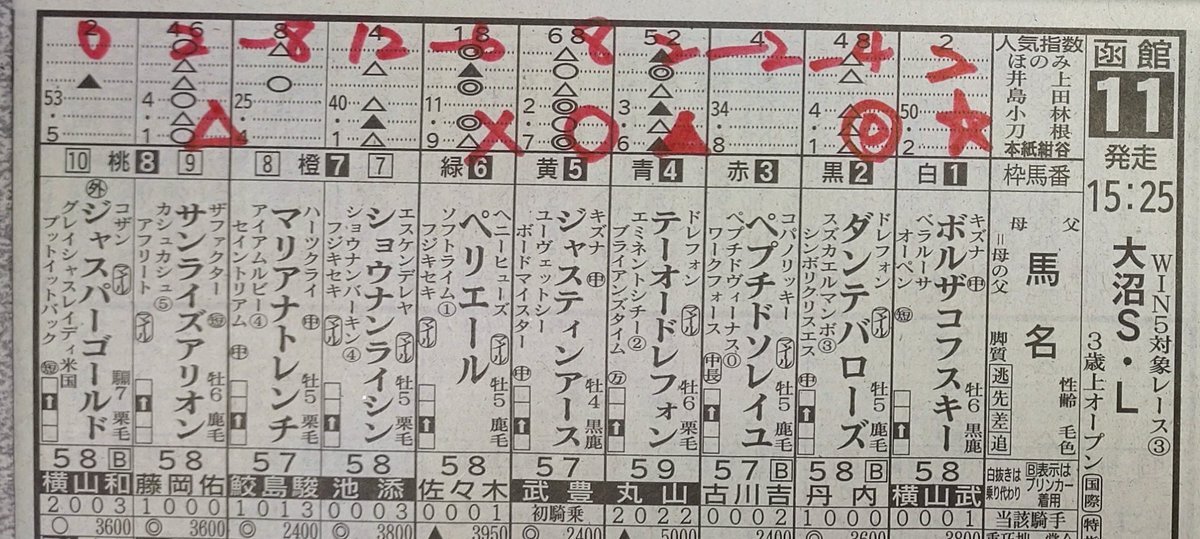 函館
11
発走
15:25
WIN5対象レース③
大沼S・L
3歳上オープン
国際
人気指数
ほのみ
井上
島田
小林
刀根
本紙紺谷
枠馬番
父
母
=母の父
馬名
性齢 毛色
脚質 逃先差追
白抜きは乗り代わり
B表示はブリンカー着用
当該騎手
2
50・2
白1
キズナ 中
ボルザコフスキー
ベラルーサ
オーペン 短
牡6 黒鹿
58
横山武
0001
48
4・1
黒2
ドレフォン マル
ダンテバローズ
スズカエルマンボ③
シンボリクリスエス
牡5 鹿毛
58 B
丹内
1000
3600
4
34・8
赤3
コパノリッキー マル
ペプチドソレイユ
ペプチドヴィーナス⓪
ワークフォース 中長
牡5 鹿毛
57 B
古川吉
0002
2400
52
3・6
青4
ドレフォン マル
テーオードレフォン
エミネントシチー②
ブライアンズタイム 万
牡5 鹿毛
59
丸山
2022
5000
68
2・7
黄5
キズナ 中
ジャスティンアース
ユーヴェットシー
ボードマイスター 中
牡4 黒鹿
57
武豊
初騎乗
2400
18
11・9
緑6
ヘニーヒューズ マル
ペリエール
ソフトライム①
フジキセキ
牡5 鹿毛
58
佐々木
0001
3950
12
40・1
橙7 7
エスケンデレヤ マル
ショウナンライシン
ショウナンバーキン④
フジキセキ
牡5 鹿毛
58
池添
0003
3800
8
25・4
8
ハーツクライ 中
マリアナトレンチ
アイアムルビー④
セイントリアム 中
牡5 栗毛
57
鮫島駿
1013
2400
46
4・1
桃8 9
ザファクター 短
サンライズアリオン
カシュカシュ⑤
アフリート マル
牡6 鹿毛
58
藤岡佑
1000
3600
2
53・5
10
外
コザン マル
ジャスパーゴールド
グレイシャスレイディ米国
プットイットバック 短
騸7 栗毛
58 B
横山和
2003
3600